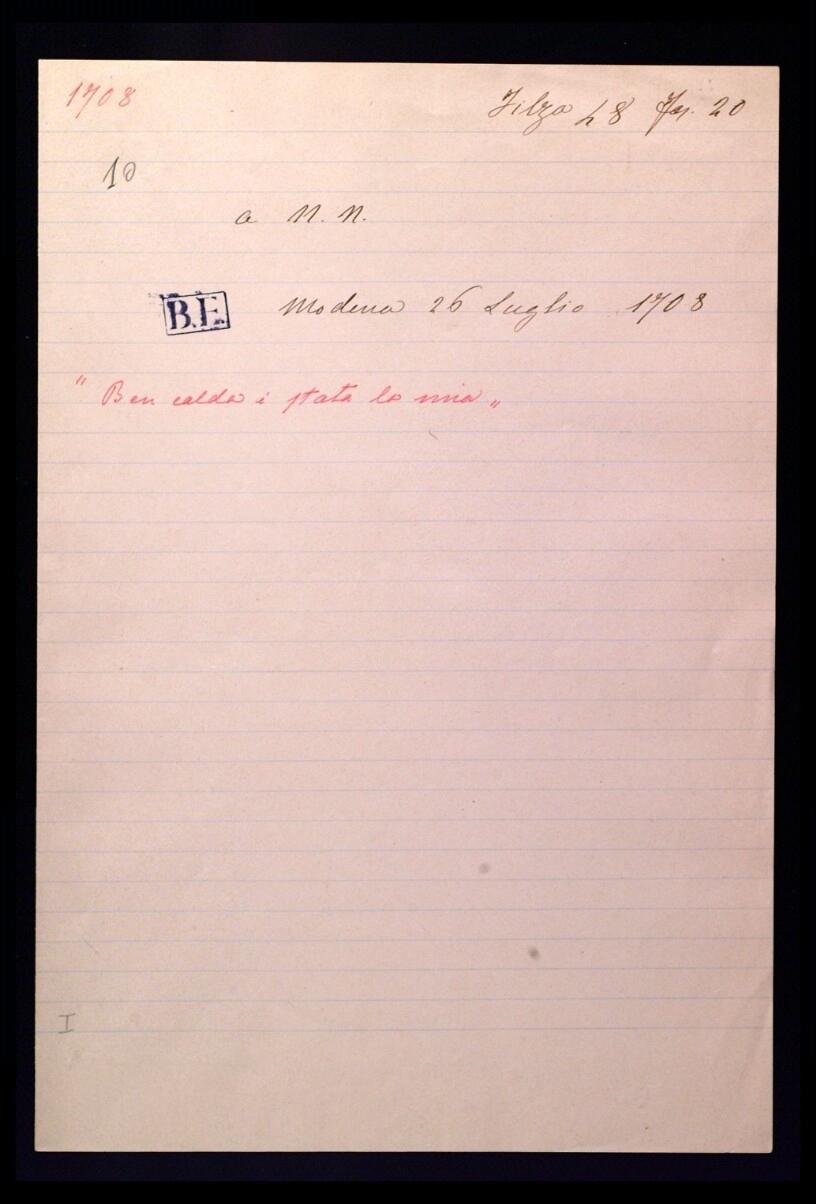 1708
Filza 48 fas. 20
10
a N. N.
B.E.
Modena 26 Luglio 1708
" Ben calda è stata la mia „
I